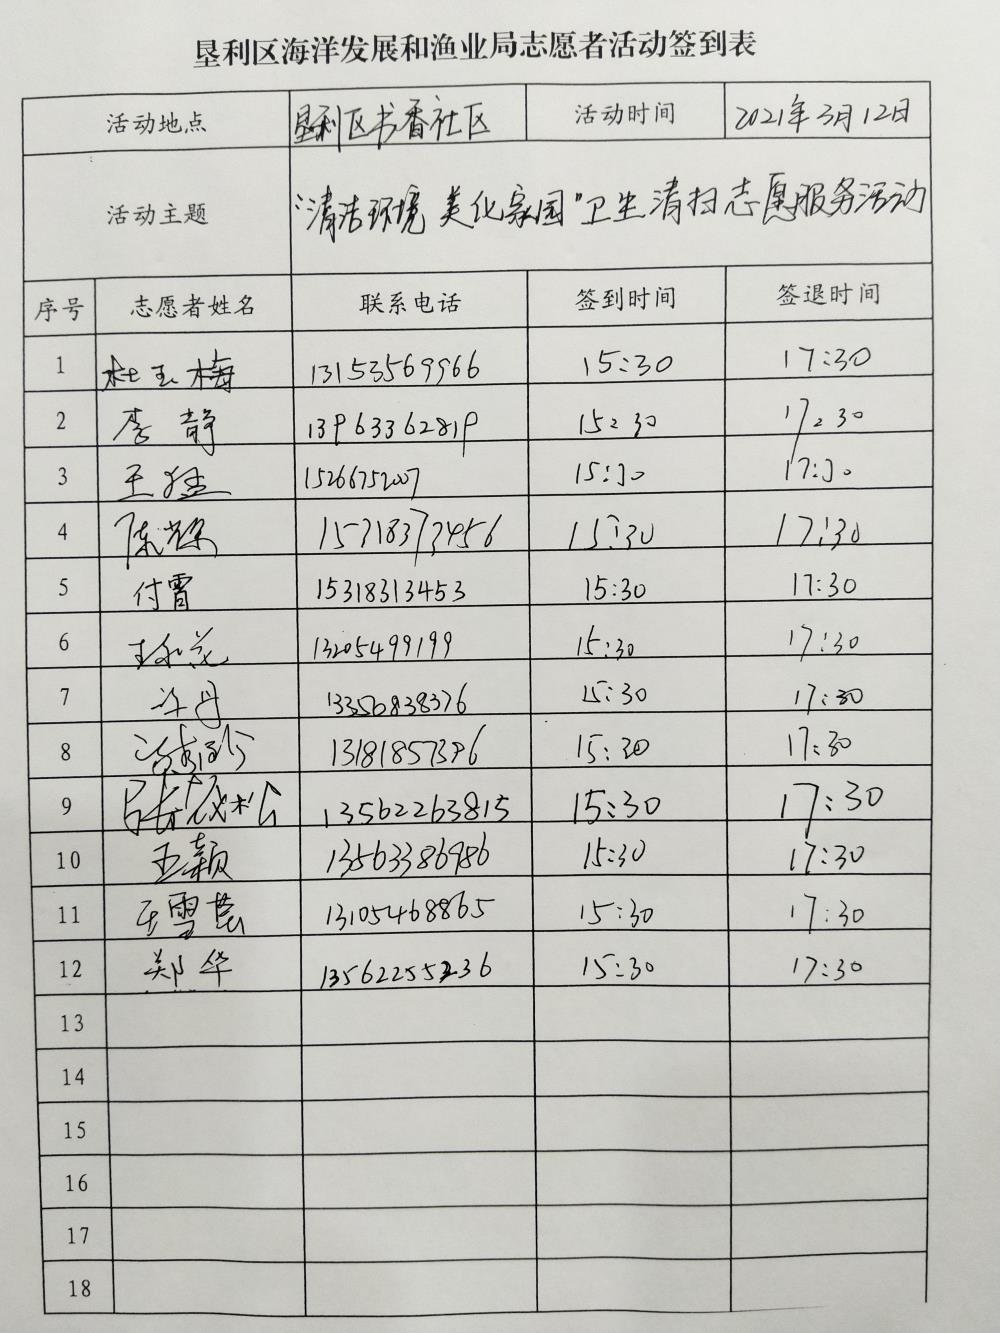 垦利区海洋发展和渔业局志愿者活动签到表
活动地点 垦利区书香社区 活动时间 2021年3月12日
活动主题 "清洁环境 美化家园"卫生清扫志愿服务活动
序号 志愿者姓名 联系电话 签到时间 签退时间
1 杜玉梅 13153569966 15:30 17:30
2 李静 13963362819 15:30 17:30
3 王猛 15266752007 15:30 17:30
4 15318373456 15:30 17:30
5 付霄 15318313453 15:30 17:30
6 13205499199 15:30 17:30
7 许丹 13356838376 15:30 17:30
8 13181857396 15:30 17:30
9 张茂松 13562263815 15:30 17:30
10 王颖 13563386986 15:30 17:30
11 王雪芸 13105468865 15:30 17:30
12 郑华 13562255236 15:30 17:30
13
14
15
16
17
18